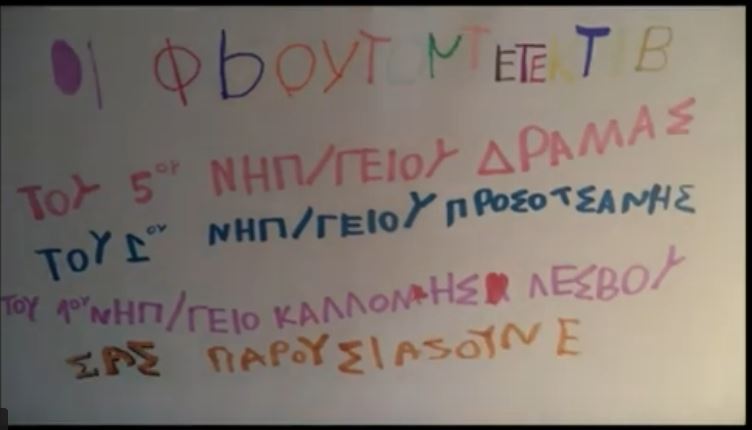 ΟΙ ΦЬΟΥΤΟΝΤΕΤΕΚΤΙΒ
ΤΟΥ 5ου ΝΗΠ/ΓΕΙΟΥ ΔΡΑΜΑΣ
ΤΟΥ 1ου ΝΗΠ/ΓΕΙΟΥ ΠΡΟΣΟΤΣΑΝΗΣ
ΤΟΥ 1ου ΝΗΠ/ΓΕΙΟ ΚΑΛΛΟΝΗΣ ΛΕΣΒΟΥ
ΣΑΣ ΠΑΡΟΥΣΙΑSΟΥΝΕ